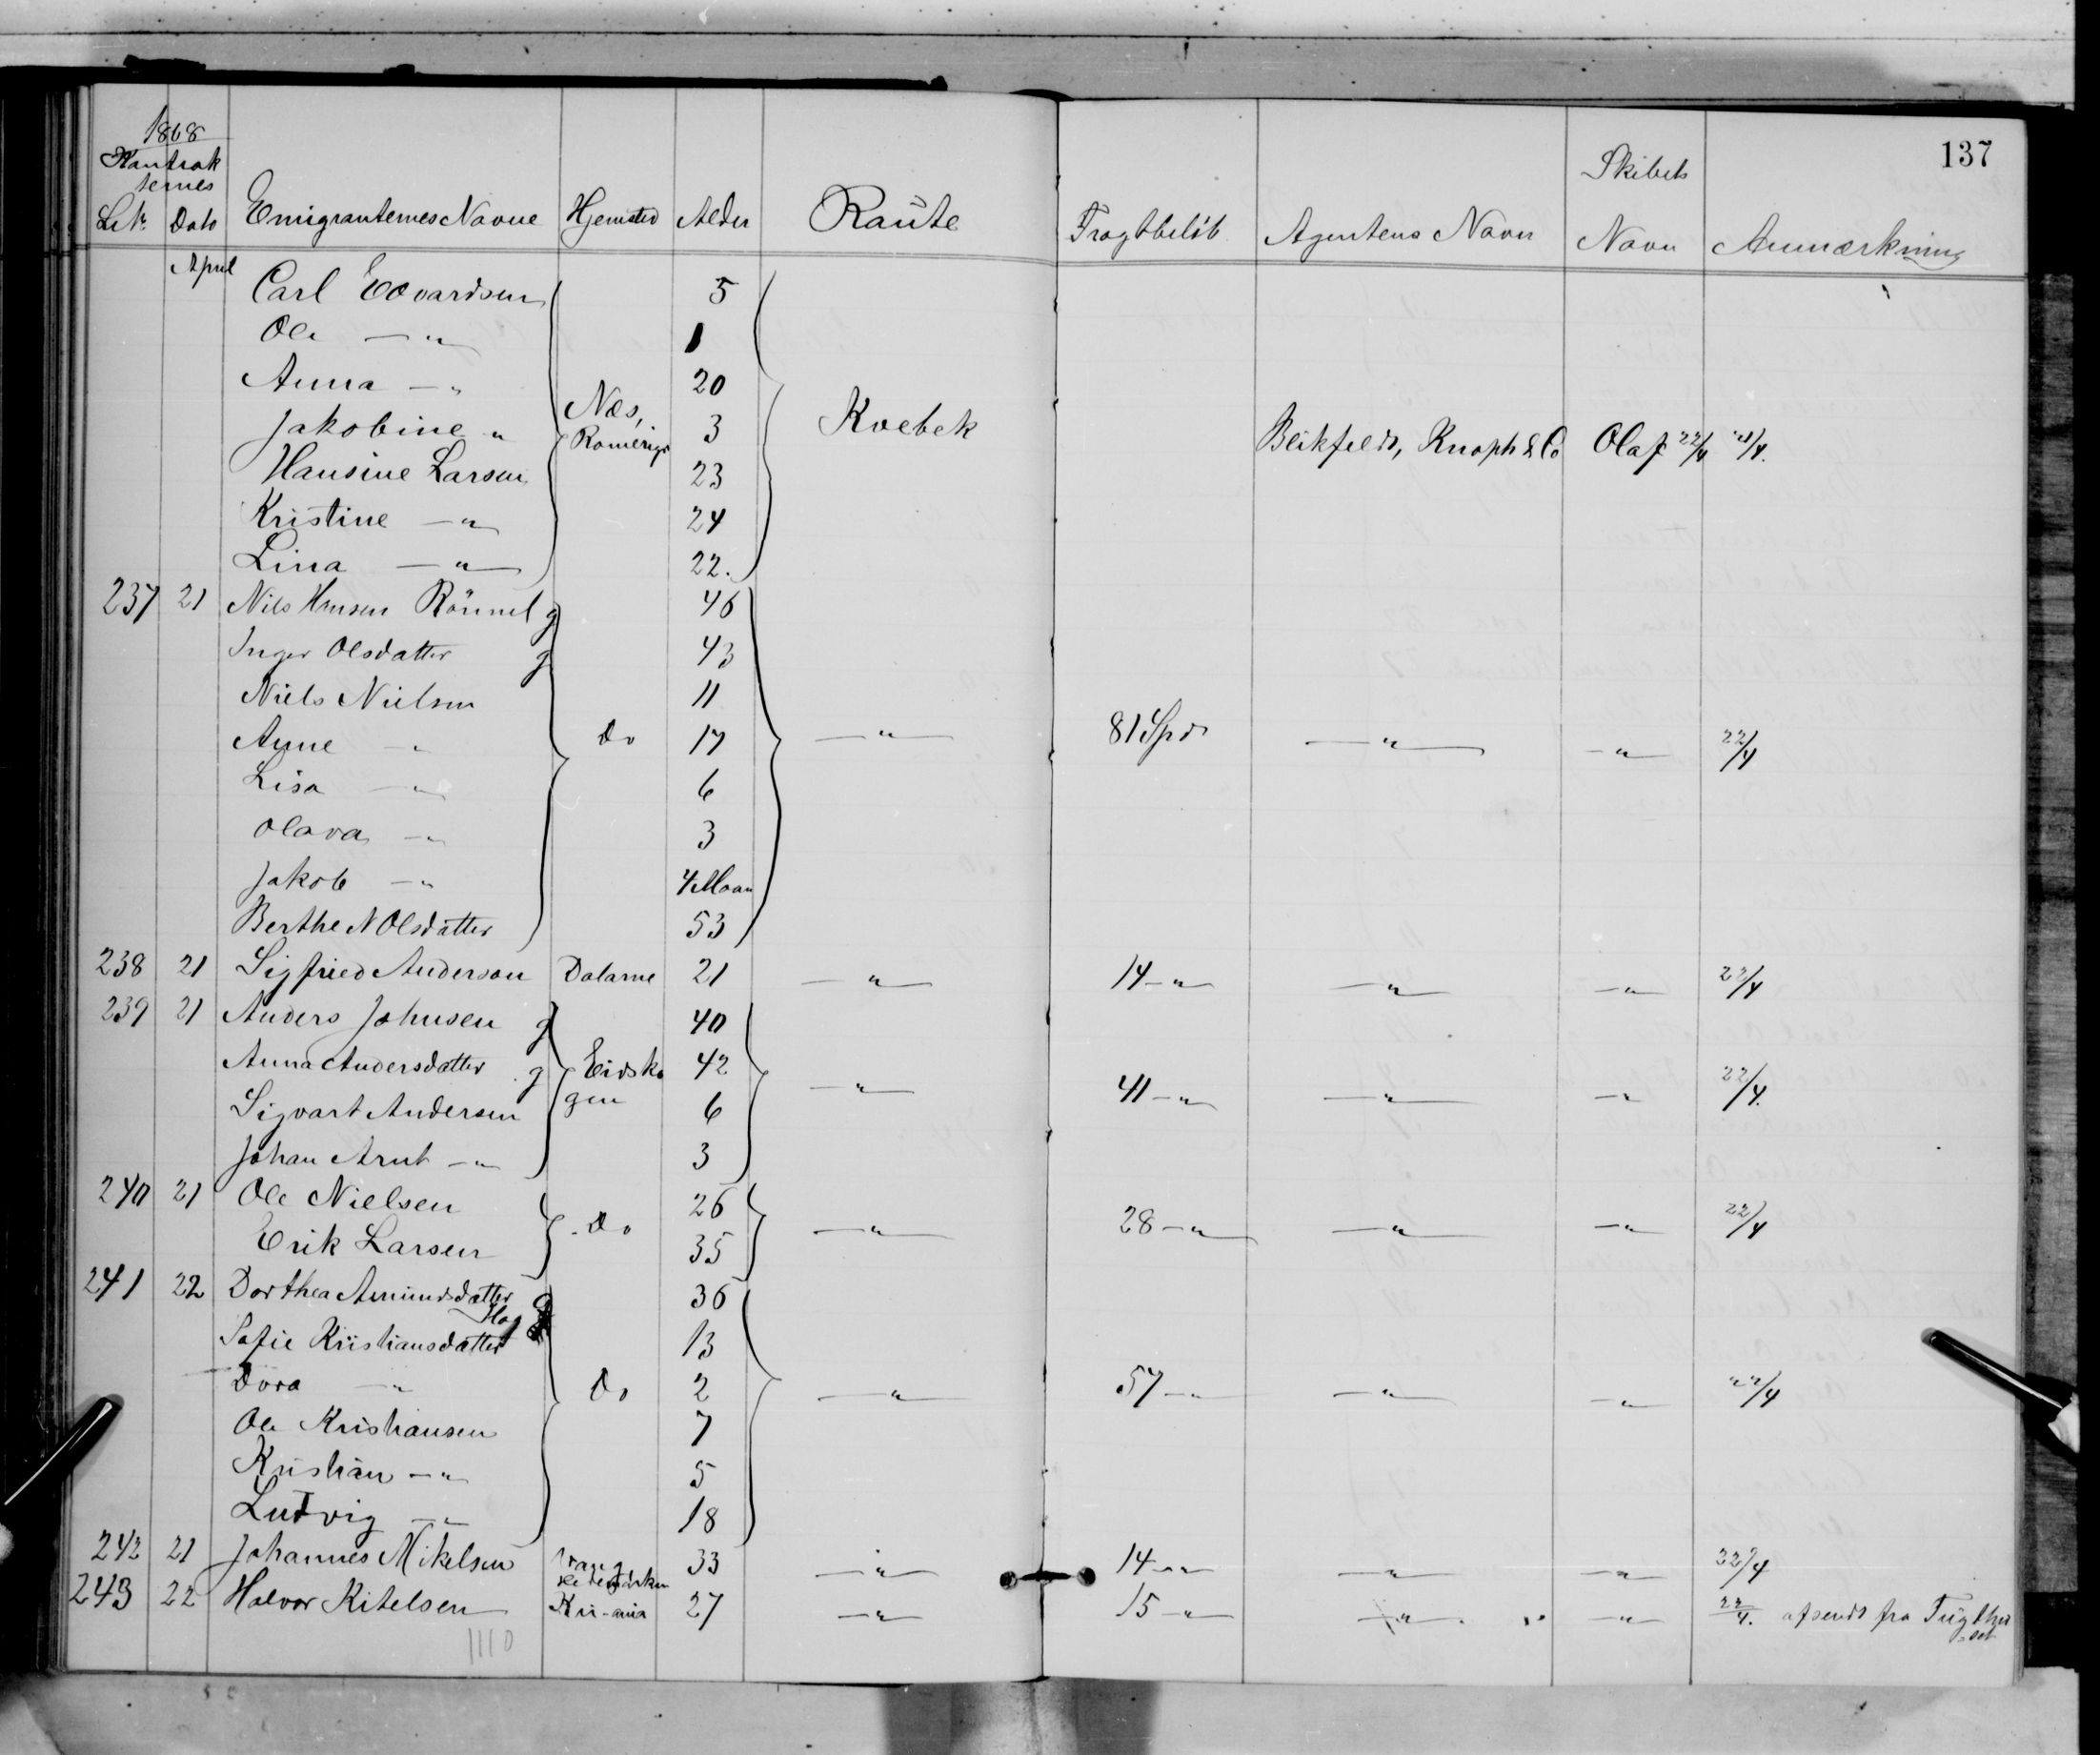 137
1868
Kontrak
ternes
Skibets
LN. Dato Emigranternes Navne Hjemsted Alder Raute Fragtbeløb Agentens Navn Navn Anmærkning
April
Carl Edvardsen 5
Ole —"— 1
Anna —" 20
Jakobine " Næs, Romerige 3 Kvebek Blikfeldt, Knoph & Co Olaf 22/4 21/4.
Hansine Larsen 23
Kristine —"— 24
Lina —"— 22.
237 21 Nils Hansen g 46
Inger Olsdatter g 43
Niels Nielsen 11
Anne —" Do 17 —"— 81 Spd —"— —"— 22/4
Lisa —"— 6
Olava —"— 3
Jakob —" 4 Maan
Berthe N Olsdatter 53
238 21 Sigfried Anderson Dalarne 21 —"— 14 —"— —"— —"— 22/4
239 21 Anders Johnsen g 40
Anna Andersdatter g Eidsko 42 —"— 41 —"— —"— —"— 22/4.
Sigvart Andersen gen 6
Johan Arnt —"— 3
240 21 Ole Nielsen 26
Do —"— 28 —"— —"— —"— 22/4
Erik Larsen 35
241 22 Dorthea Amundsdatter g 36
Sofie Kristiansdatter 13
Dora —"— Do 2 —"— 57 —"— —"— —"— 22/4
Ole Kristiansen 7
Kristian —"— 5
Ludvig —"— 18
242 21 Johannes Mikelsen Vang Hedemarken 33 —"— 14 —"— —"— —"— 22/4
243 22 Halvor Kitelsen Kri-ania 27 —"— 15 —"— —"— —"— 22/4. afsendt fra Tugthu
set
1110